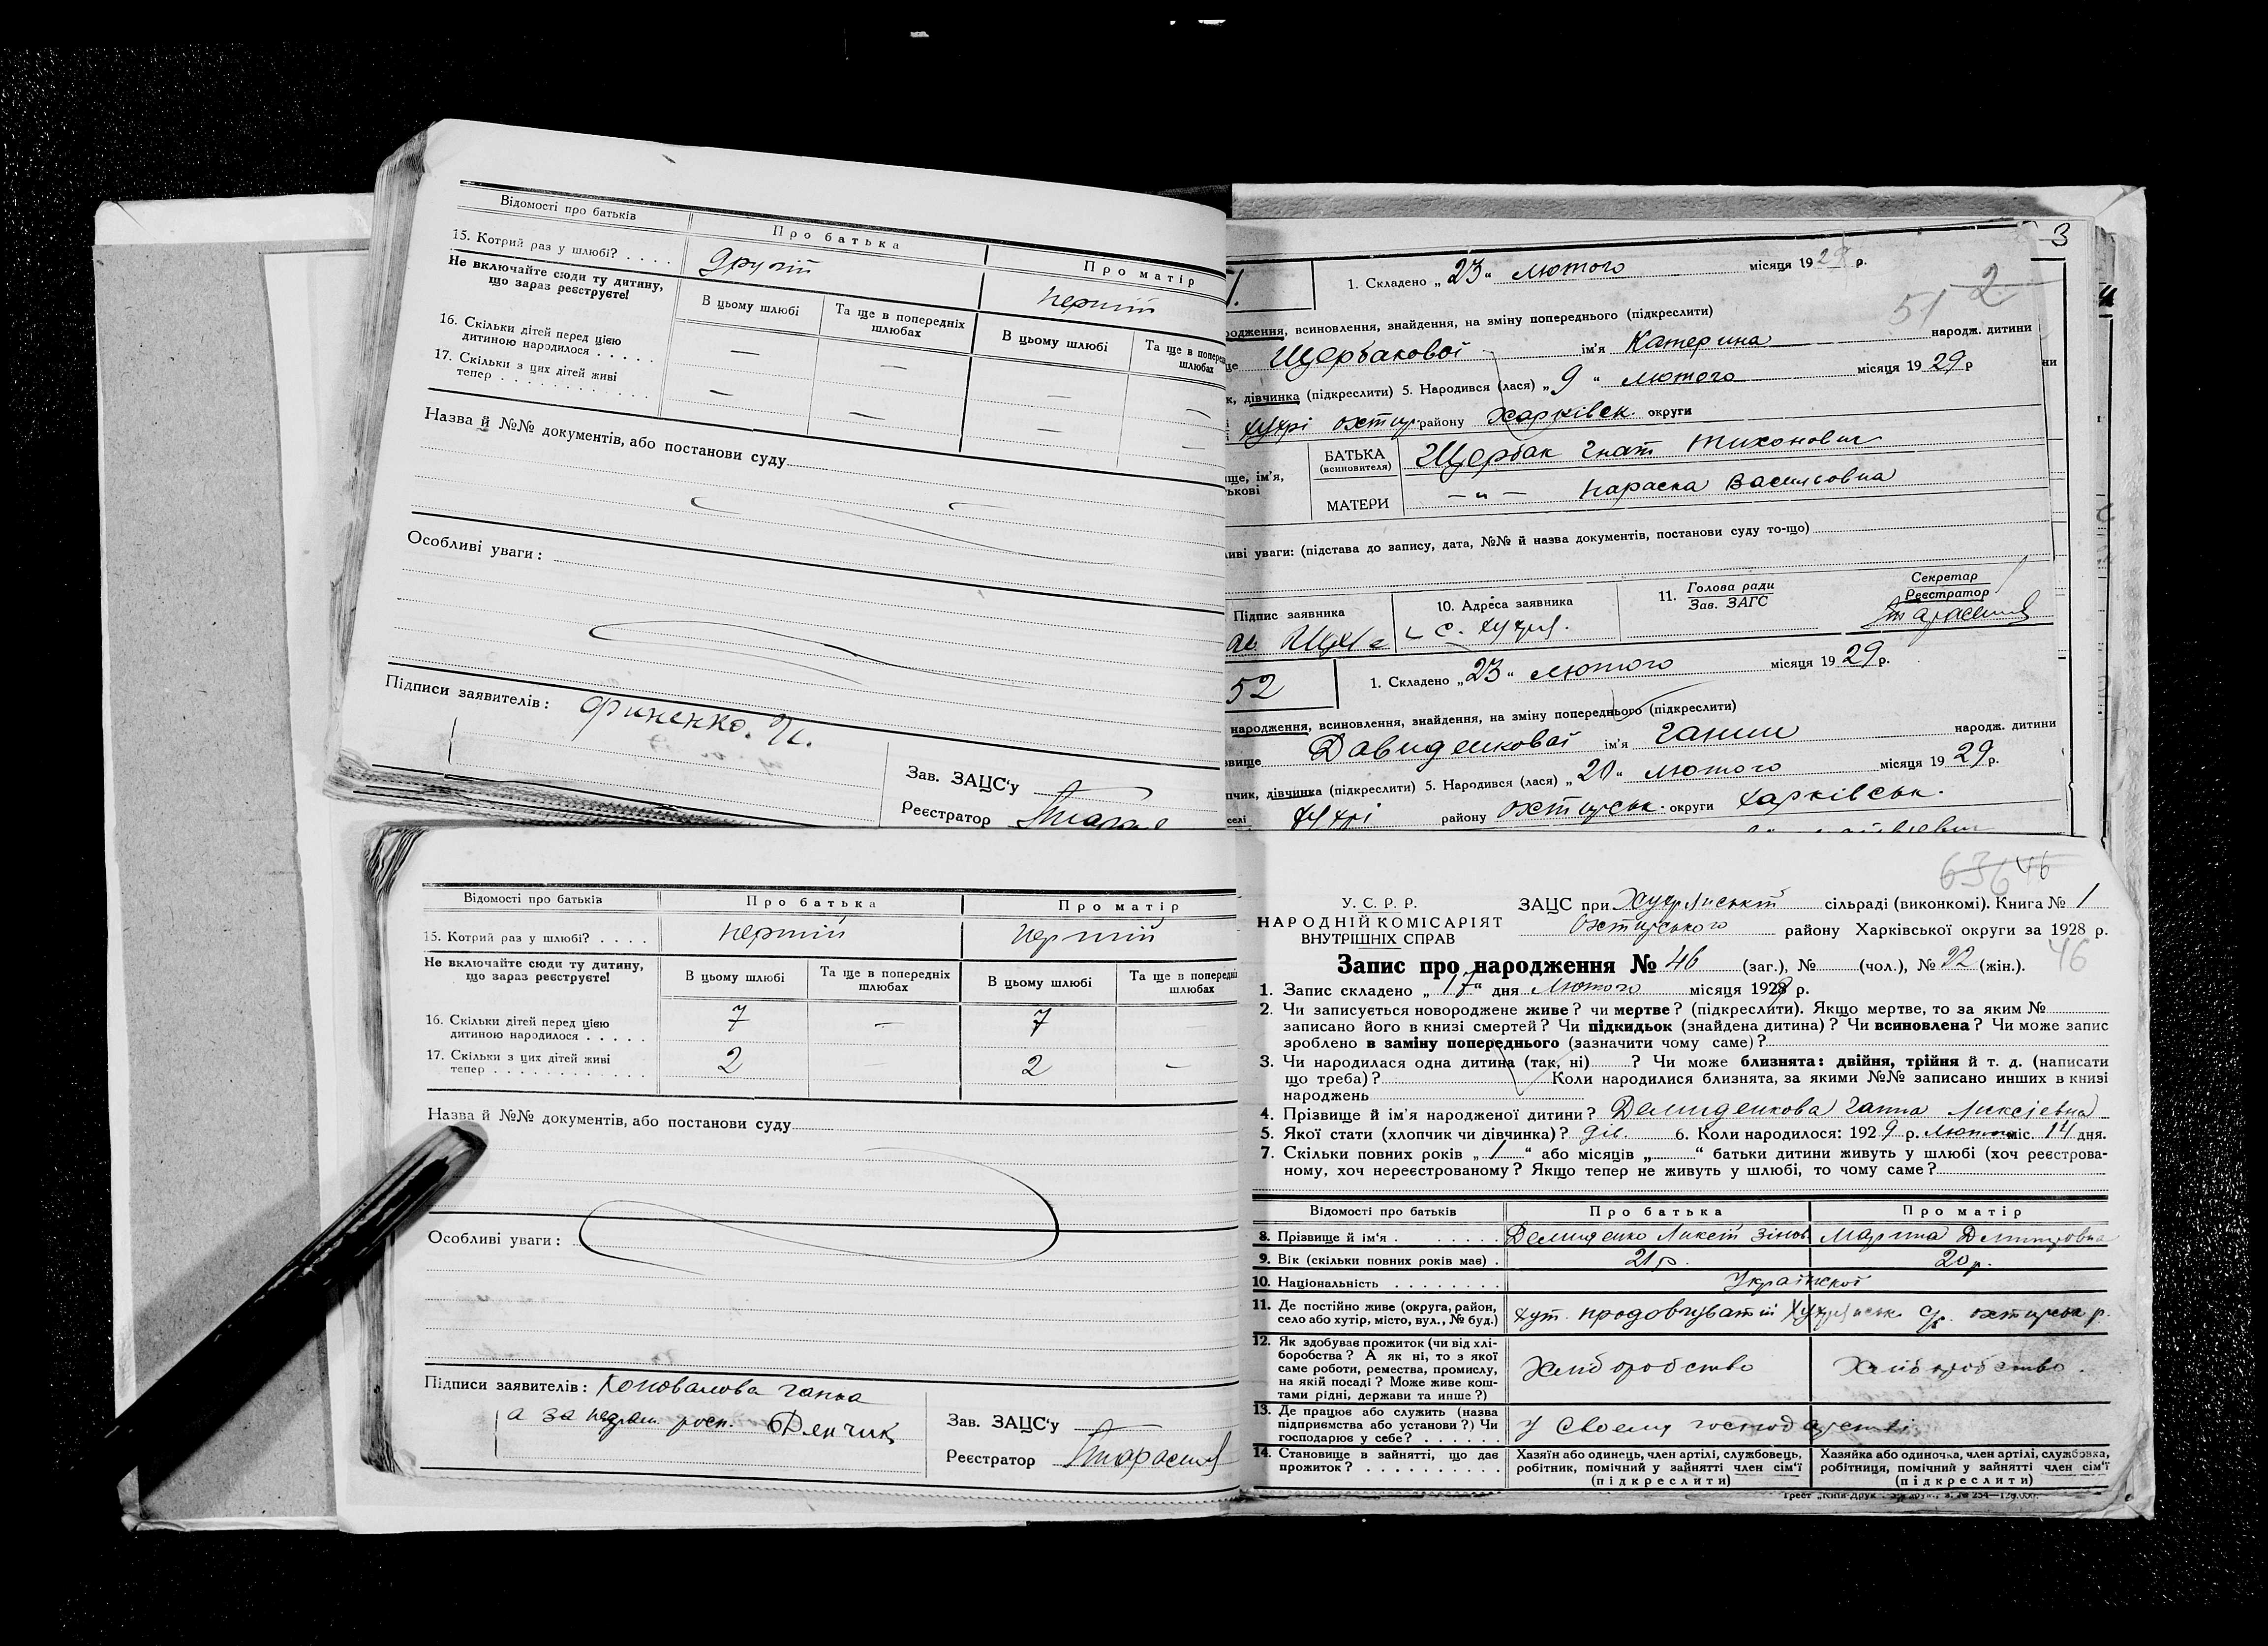 Відомості про батьків
Про батька
Про матір
15. Котрий раз у шлюбі? . . . .
другий
перший
Не включайте сюди ту дитину,
що зараз реєструєте!
В цьому шлюбі
Та ще в попередніх
шлюбах
В цьому шлюбі
Та ще в поперед
шлюбах
16. Скільки дітей перед цією
дитиною народилося . . . . .
— — — —
17. Скільки з цих дітей живі
тепер . . . . . . . . . . . .
— — — —
Назва й №№ документів, або постанови суду
Особливі уваги:
Підписи заявителів: Финенко. И.
Зав. ЗАЦС'у
Реєстратор
3
1. Складено „23“ лютого місяця 1928 р.
51 2
родження, всиновлення, знайдення, на зміну попереднього (підкреслити)
ще Щербакової ім'я Катерина народж. дитини
к, дівчинка (підкреслити) 5. Народився (лася) „9“ лютого місяця 1929 р
ни
Хухрі Охтир. району Харківськ. округи
ще, ім'я,
ькові
БАТЬКА
(всиновителя)
Щербак Гнат Тихонович
МАТЕРИ
—„— Параска Василовна
иві уваги: (підстава до запису, дата, №№ й назва документів, постанови суду то-що)
Підпис заявника
10. Адреса заявника
с. Хухря.
11. Голова ради
Зав. ЗАГС
Секретар
Реєстратор
52
1. Складено „23“ лютого місяця 1929 р.
народження, всиновлення, знайдення, на зміну попереднього (підкреслити)
звище Давиденкової ім'я Ганни народж. дитини
пчик, дівчинка (підкреслити) 5. Народився (лася) „20“ лютого місяця 1929 р.
селі Хухрі району Охтирськ. округи Харківськ.
Відомості про батьків
Про батька
Про матір
15. Котрий раз у шлюбі? . . . .
перший
перший
Не включайте сюди ту дитину,
що зараз реєструєте!
В цьому шлюбі
Та ще в попередніх
шлюбах
В цьому шлюбі
Та ще в попередні
шлюбах
16. Скільки дітей перед цією
дитиною народилося . . . . .
7 — 7
17. Скільки з цих дітей живі
тепер . . . . . . . . . . . .
2 2 —
Назва й №№ документів, або постанови суду
Особливі уваги:
Підписи заявителів: Коновалова Ганна
а за неграм. росп. Фенчик
Зав. ЗАЦС'у
Реєстратор
636 46
У. С. Р. Р.
НАРОДНІЙ КОМІСАРІЯТ
ВНУТРІШНІХ СПРАВ
ЗАЦС при Хухрянській сільраді (виконкомі). Книга № 1
Охтирського району Харківської округи за 1928 р.
46
Запис про народження № 46 (заг.), № (чол.), № 22 (жін.).
1. Запис складено „17“ дня Лютого місяця 1929 р.
2. Чи записується новороджене живе? чи мертве? (підкреслити). Якщо мертве, то за яким №
записано його в книзі смертей? Чи підкидьок (знайдена дитина)? Чи всиновлена? Чи може запис
зроблено в заміну попереднього (зазначити чому саме)?
3. Чи народилася одна дитина (так, ні)? Чи може близнята: двійня, трійня й т. д. (написати
що треба)? Коли народилися близнята, за якими №№ записано инших в книзі
народжень
4. Прізвище й ім'я народженої дитини? Демиденкова Ганна Ликсіевна
5. Якої стати (хлопчик чи дівчинка)? дів. 6. Коли народилося: 1929 р. Лютого міс. 14 дня.
7. Скільки повних років „1“ або місяців „ “ батьки дитини живуть у шлюбі (хоч реєстрова-
ному, хоч нереєстрованому? Якщо тепер не живуть у шлюбі, то чому саме?
Відомості про батьків
Про батька
Про матір
8. Прізвище й ім'я . . . . . . .
Демиденко Ликсій Зінов
Марина Дмитровна
9. Вік (скільки повних років має) .
21 р.
20 р.
10. Національність . . . . . . . .
Української
11. Де постійно живе (округа, район,
село або хутір, місто, вул., № буд.)
Хут. Продовгуватий Хухрянськ. с/р. охтирськ р.
12. Як здобуває прожиток (чи від хлі-
боробства? А як ні, то з якої
саме роботи, ремества, промислу,
на якій посаді? Може живе кош-
тами рідні, держави та инше?)
Хліборобство
Хліборобство.
13. Де працює або служить (назва
підприємства або установи?) Чи
господарює у себе? . . . . . .
У своему господарстві
14. Становище в зайнятті, що дає
прожиток? . . . . . . . . . .
Хазяїн або одинець, член артілі, службовець,
робітник, помічний у зайнятті член сім'ї
(підкреслити)
Хазяйка або одиночка, член артілі, службовка,
робітниця, помічний у зайнятті член сім'ї
(підкреслити)